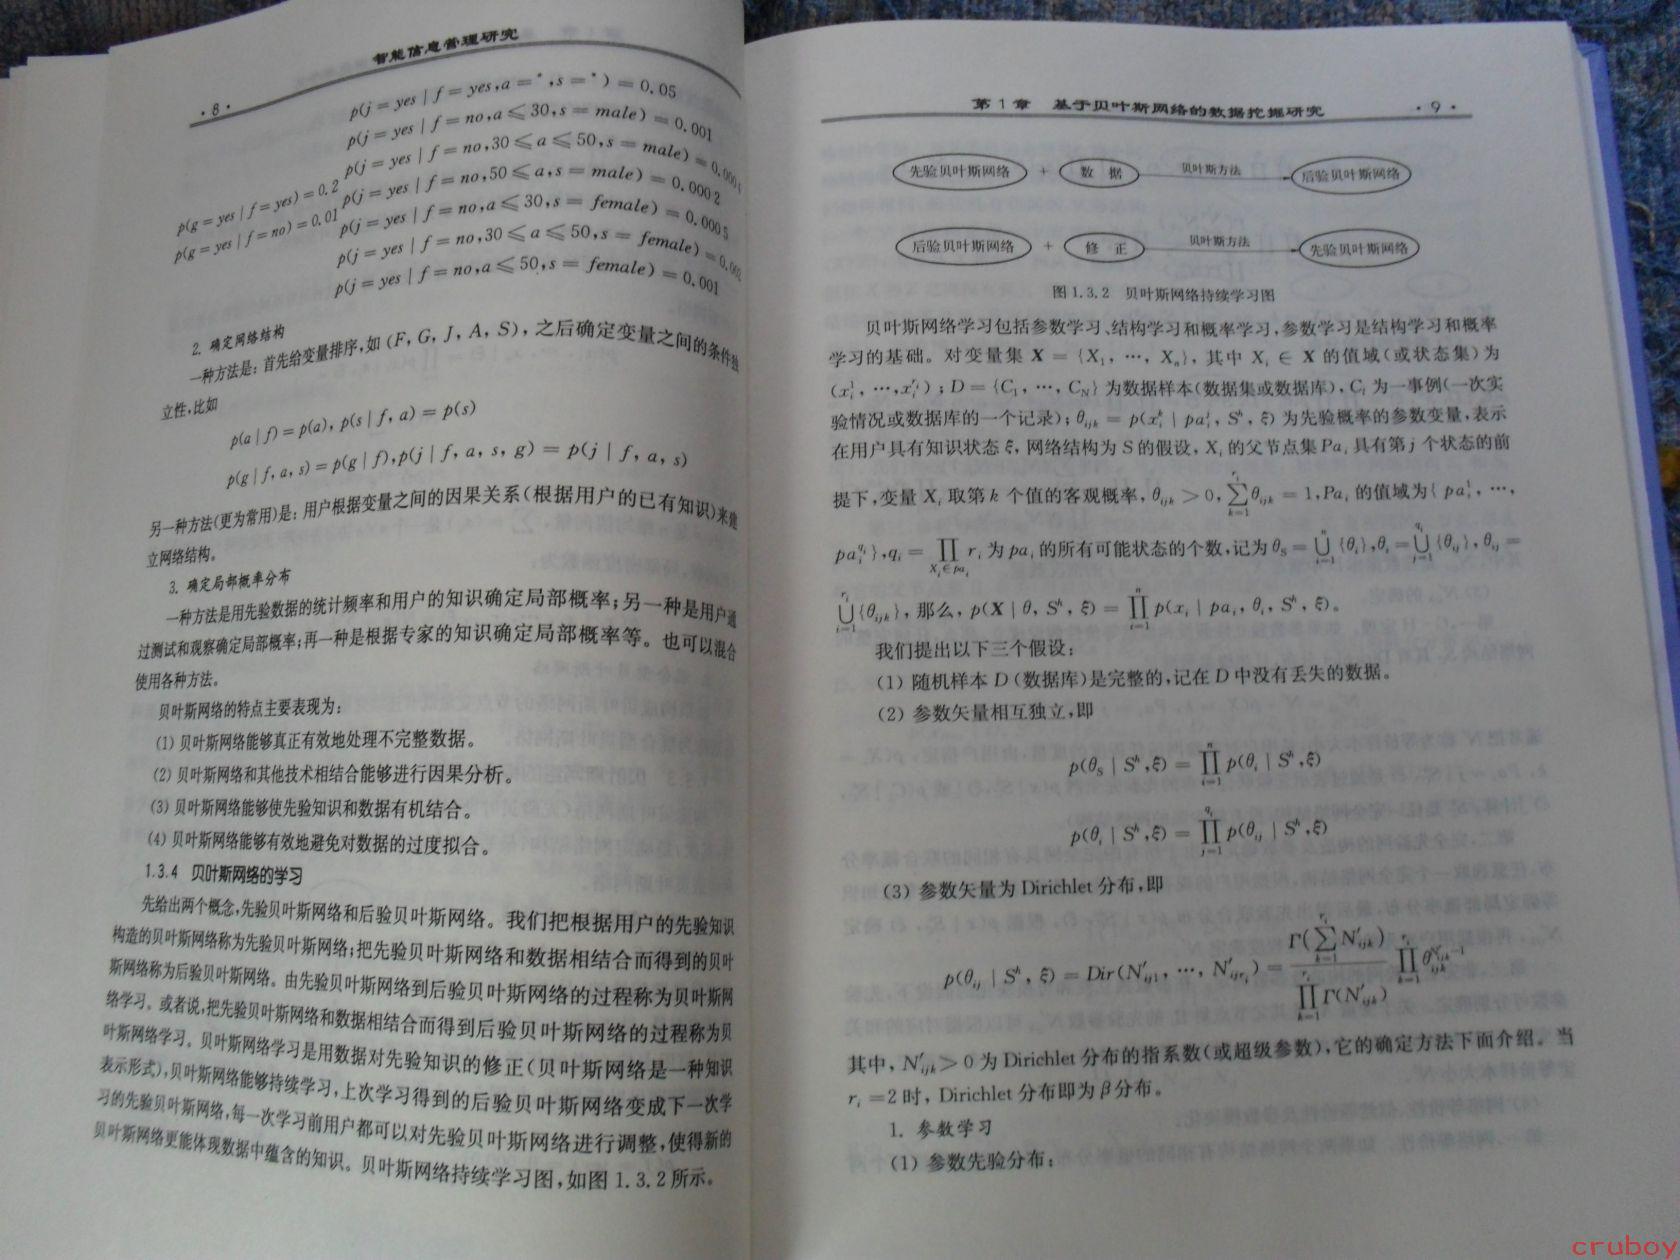 智能信息管理研究
· 8 ·
p(j = yes | f = yes, a = *, s = *) = 0.05
p(j = yes | f = no, a ⩽ 30, s = male) = 0.001
p(j = yes | f = no, 30 ⩽ a ⩽ 50, s = male) = 0.000
p(g = yes | f = yes) = 0.2 p(j = yes | f = no, 50 ⩽ a, s = male) = 0.000 2
p(g = yes | f = no) = 0.01 p(j = yes | f = no, a ⩽ 30, s = female) = 0.000 5
p(j = yes | f = no, 30 ⩽ a ⩽ 50, s = female) = 0.002
p(j = yes | f = no, a ⩽ 50, s = female) = 0.001
2. 确定网络结构
一种方法是:首先给变量排序,如 (F, G, J, A, S), 之后确定变量之间的条件独
立性,比如
p(a | f) = p(a), p(s | f, a) = p(s)
p(g | f, a, s) = p(g | f), p(j | f, a, s, g) = p(j | f, a, s)
另一种方法(更为常用)是:用户根据变量之间的因果关系(根据用户的已有知识)来建
立网络结构。
3. 确定局部概率分布
一种方法是用先验数据的统计频率和用户的知识确定局部概率;另一种是用户通
过测试和观察确定局部概率;再一种是根据专家的知识确定局部概率等。也可以混合
使用各种方法。
贝叶斯网络的特点主要表现为:
(1) 贝叶斯网络能够真正有效地处理不完整数据。
(2) 贝叶斯网络和其他技术相结合能够进行因果分析。
(3) 贝叶斯网络能够使先验知识和数据有机结合。
(4) 贝叶斯网络能够有效地避免对数据的过度拟合。
1.3.4 贝叶斯网络的学习
先给出两个概念,先验贝叶斯网络和后验贝叶斯网络。我们把根据用户的先验知识
构造的贝叶斯网络称为先验贝叶斯网络;把先验贝叶斯网络和数据相结合而得到的贝叶
斯网络称为后验贝叶斯网络。由先验贝叶斯网络到后验贝叶斯网络的过程称为贝叶斯网
络学习。或者说,把先验贝叶斯网络和数据相结合而得到后验贝叶斯网络的过程称为贝
叶斯网络学习。贝叶斯网络学习是用数据对先验知识的修正(贝叶斯网络是一种知识
表示形式),贝叶斯网络能够持续学习,上次学习得到的后验贝叶斯网络变成下一次学
习的先验贝叶斯网络,每一次学习前用户都可以对先验贝叶斯网络进行调整,使得新的
贝叶斯网络更能体现数据中蕴含的知识。贝叶斯网络持续学习图,如图 1.3.2 所示。
第 1 章 基于贝叶斯网络的数据挖掘研究 · 9 ·
先验贝叶斯网络 + 数 据 贝叶斯方法 后验贝叶斯网络
后验贝叶斯网络 + 修 正 贝叶斯方法 先验贝叶斯网络
图 1.3.2 贝叶斯网络持续学习图
贝叶斯网络学习包括参数学习、结构学习和概率学习,参数学习是结构学习和概率
学习的基础。对变量集 X = {X₁, …, Xₙ}, 其中 Xᵢ ∈ X 的值域(或状态集)为
(xᵢ¹, …, xᵢ^{rᵢ}); D = {C₁, …, C_N} 为数据样本(数据集或数据库), Cᵢ 为一事例(一次实
验情况或数据库的一个记录); θᵢⱼₖ = p(xᵢᵏ | paᵢʲ, Sʰ, ξ) 为先验概率的参数变量, 表示
在用户具有知识状态 ξ, 网络结构为 S 的假设, Xᵢ 的父节点集 Paᵢ 具有第 j 个状态的前
提下, 变量 Xᵢ 取第 k 个值的客观概率, θᵢⱼₖ > 0, ∑_{k=1}^{rᵢ} θᵢⱼₖ = 1, Paᵢ 的值域为{ paᵢ¹, …,
paᵢ^{qᵢ} }, qᵢ = ∏_{Xᵢ∈paᵢ} rᵢ 为 paᵢ 的所有可能状态的个数, 记为 θ_S = ⋃_{i=1}^{n} {θᵢ}, θᵢ = ⋃_{j=1}^{qᵢ} {θᵢⱼ}, θᵢⱼ =
⋃_{i=1}^{rᵢ} {θᵢⱼₖ}, 那么, p(X | θ, Sʰ, ξ) = ∏_{i=1}^{n} p(xᵢ | paᵢ, θᵢ, Sʰ, ξ)。
我们提出以下三个假设:
(1) 随机样本 D (数据库)是完整的,记在 D 中没有丢失的数据。
(2) 参数矢量相互独立,即
p(θ_S | Sʰ, ξ) = ∏_{i=1}^{n} p(θᵢ | Sʰ, ξ)
p(θᵢ | Sʰ, ξ) = ∏_{j=1}^{qᵢ} p(θᵢⱼ | Sʰ, ξ)
(3) 参数矢量为 Dirichlet 分布,即
p(θᵢⱼ | Sʰ, ξ) = Dir(N′ᵢⱼ₁, …, N′ᵢⱼrᵢ) = Γ(∑_{k=1}^{rᵢ} N′ᵢⱼₖ) / ∏_{k=1}^{rᵢ} Γ(N′ᵢⱼₖ) ∏_{k=1}^{rᵢ} θᵢⱼₖ^{N′ᵢⱼₖ−1}
其中, N′ᵢⱼₖ > 0 为 Dirichlet 分布的指系数(或超级参数),它的确定方法下面介绍。当
rᵢ = 2 时, Dirichlet 分布即为 β 分布。
1. 参数学习
(1) 参数先验分布:
cruboy